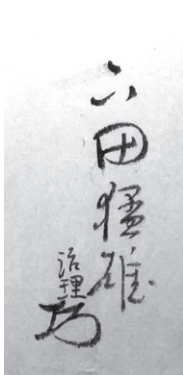 六田猛雄
治理
乃